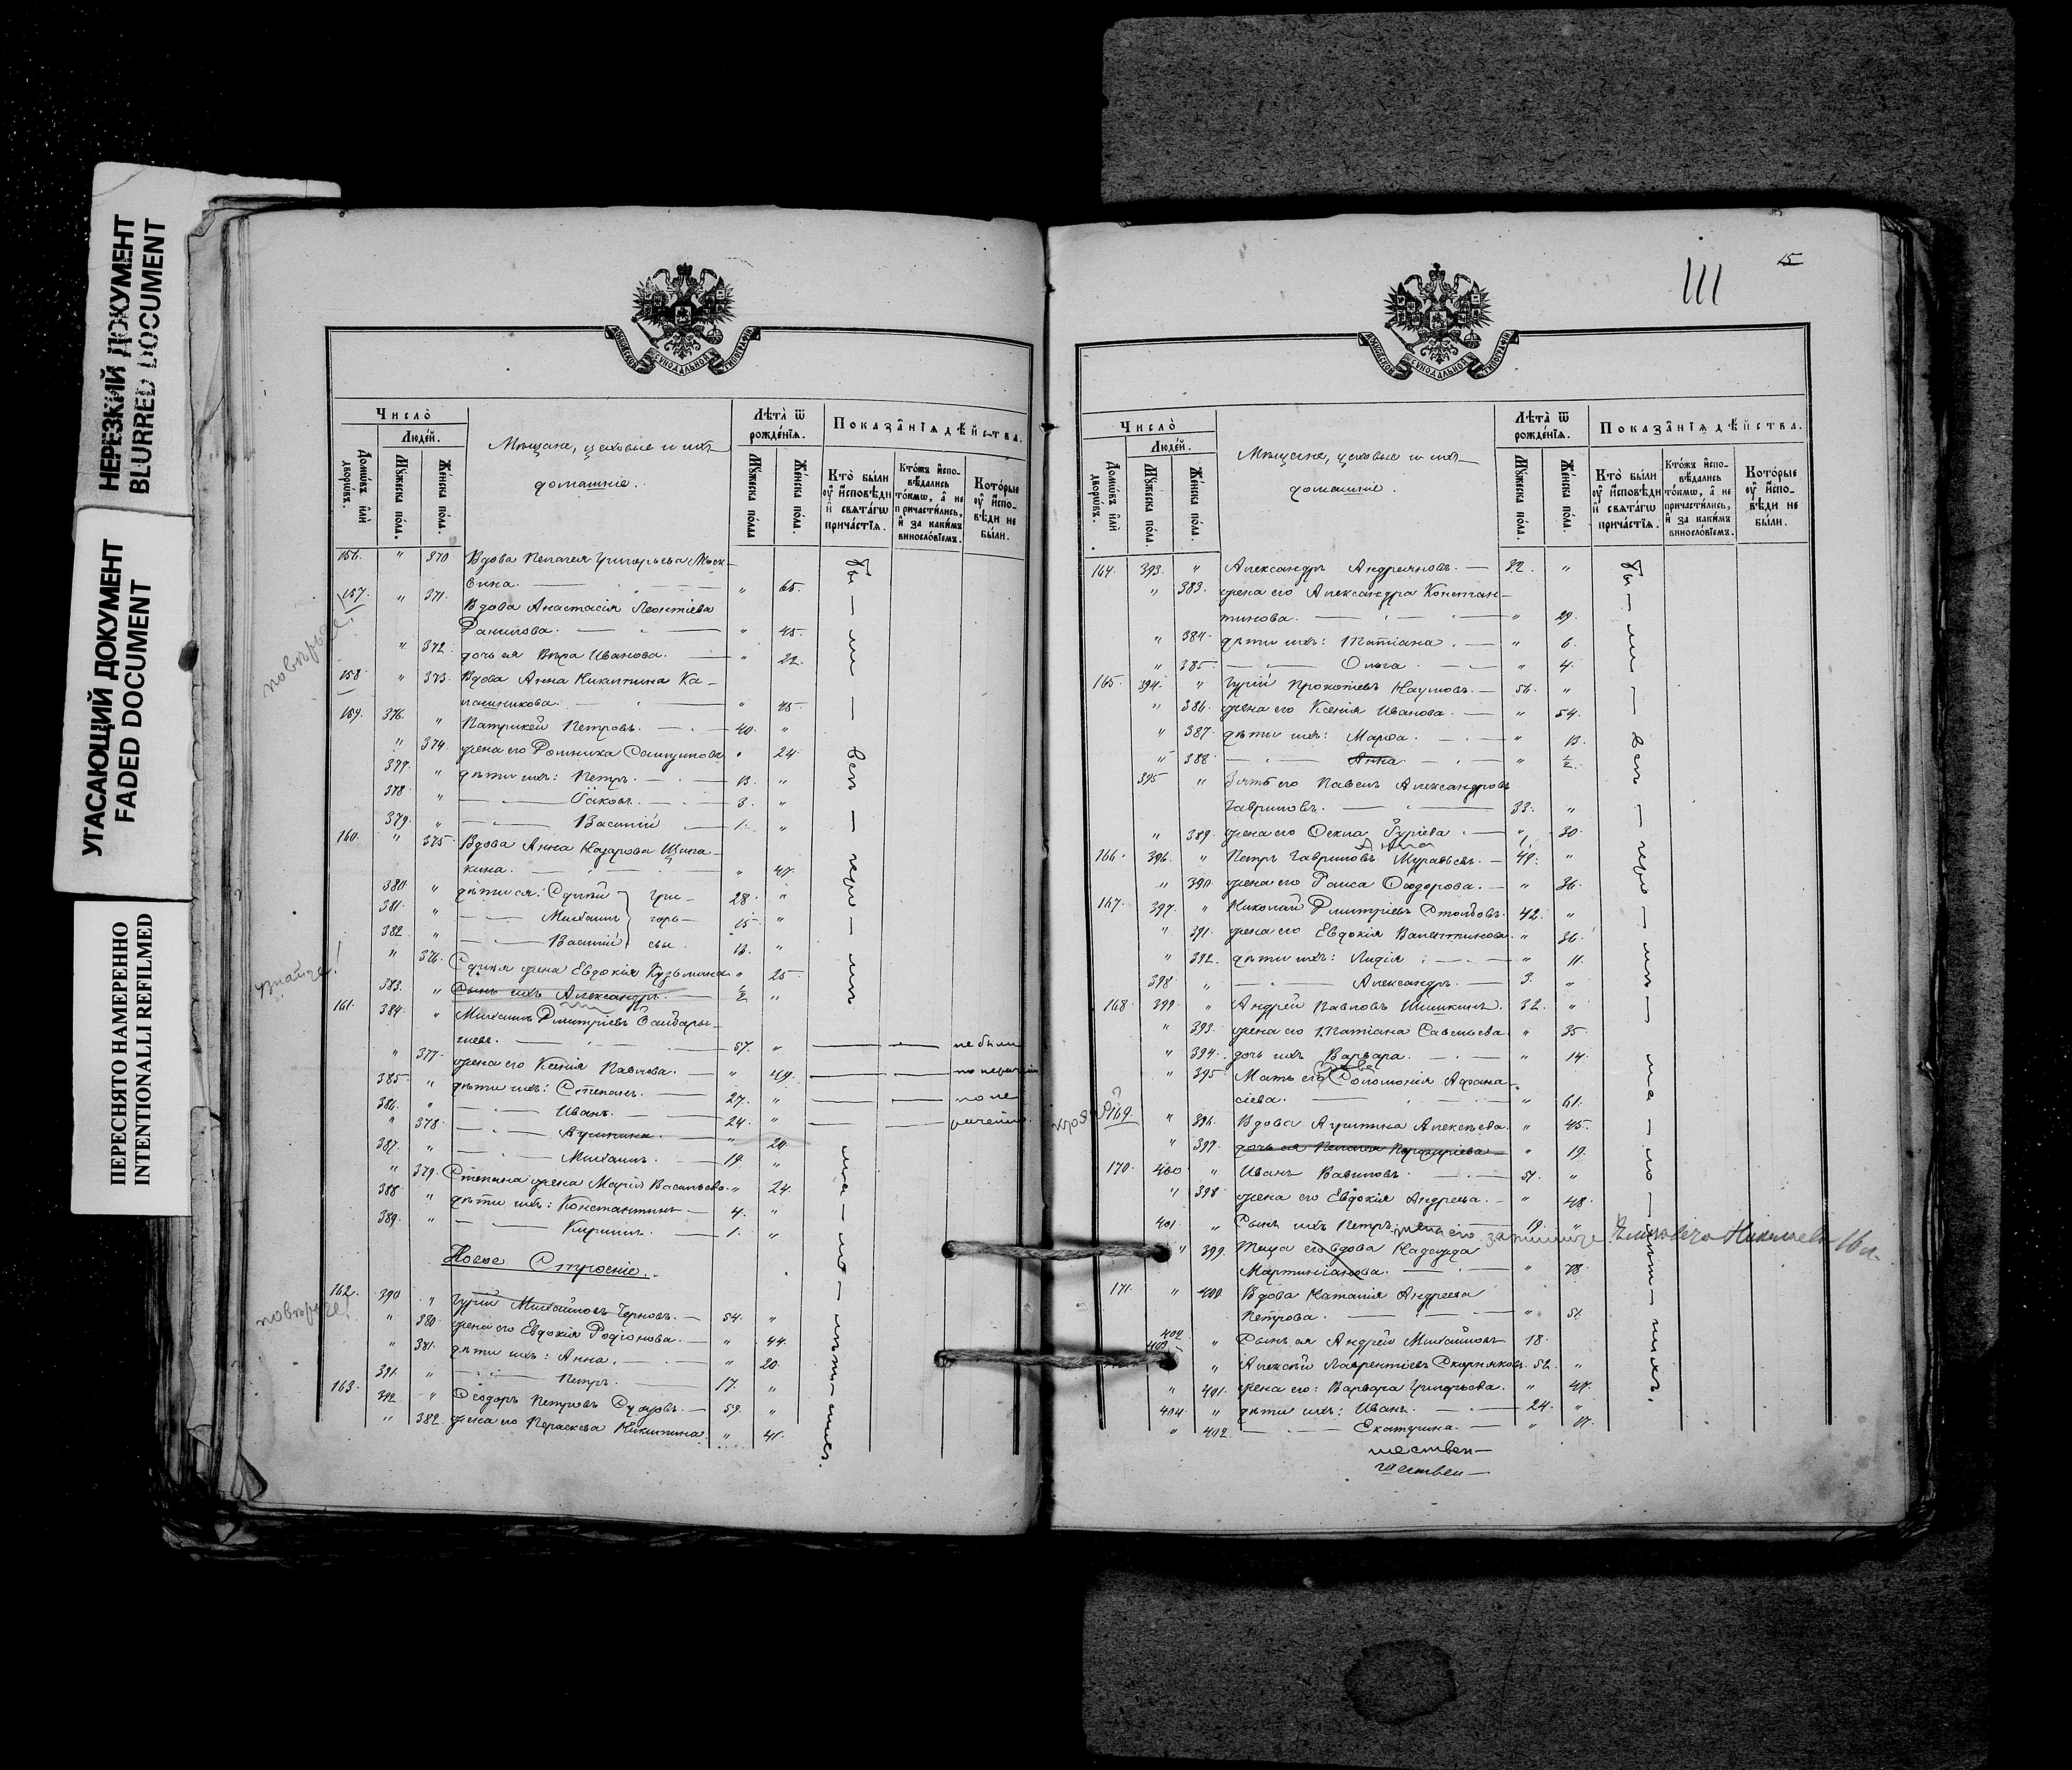 НЕРЕЗКИЙ ДОКУМЕНТ
BLURRED DOCUMENT
УГАСАЮЩИЙ ДОКУМЕНТ
FADED DOCUMENT
ПЕРЕСНЯТО НАМЕРЕННО
INTENTIONALLI REFILMED
Число̀
Людей.
Домѡвъ илѝ дворѡвъ.
Мꙋжеска пола.
Женска пола.
Мѣщане, цеховые и ихъ
домашніе.
Лѣта̀ ѿ рожденїѧ.
Мꙋжеска пола
Женска пола.
Показанїѧ дѣйства.
Кто̀ были оу҆ и҆сповѣди и҆ свѧтагѡ причастїѧ.
Ктожъ и҆сповѣдались токмѡ, а҆ не причастились, и҆ за какимъ винословїемъ.
Которые оу҆ и҆сповѣди не были.
156. " 370. Вдова Пелагея Григорьева Моск-
вина. " 65.
157. " 371. Вдова Анастасія Леонтіева
Данилова. " 45.
" 372. дочь ея Вѣра Иванова. " 22.
158. " 373. Вдова Анна Никитина Ка-
лашникова. " 45.
159. 376. " Патрикей Петровъ. 40. "
" 374. жена его 24.
377. " дѣти ихъ: Петръ. 13. "
378. " Іаковъ. 3. "
379. " Василій 1. "
160. " 375. Вдова Анна Назарова
кина. " 47.
380. " дѣти ея: Гри- 28. "
381. " Михаилъ горь- 15. "
382. " Василій евы. 13. "
" 376. жена Евдокія Кузьмина " 25.
383. " Сынъ ихъ Александръ. ½ "
161. 384. " Михаилъ Дмитріевъ
57. " не были
" 377. жена его Ксенія Павлова. " 49.
385. " дѣти ихъ: Степанъ. 27. " по не
386. " Иванъ. 24. "
" 378. " 20.
387. " Михаилъ. 19. "
" 379. Степана жена Марія Васильева " 24.
388. " дѣти ихъ: Константинъ 4. "
389. " Кириллъ. 1. "
Новое Строеніе.
162. 390 " Гурій Михайловъ Черновъ. 54. "
" 380. жена его Евдокія Родіонова. " 44.
" 381. дѣти ихъ: Анна. " 20.
391. " Петръ. 17. "
163. 392 " Ѳеодоръ Петровъ 59. "
" 382. жена его Параскева Никитина. " 41.
111
15
Число̀
Людей.
Домѡвъ илѝ дворѡвъ.
Мꙋжеска пола.
Женска пола.
Мѣщане, цеховые и ихъ
домашніе.
Лѣта̀ ѿ рожденїѧ.
Мꙋжеска пола.
Женска пола.
Показанїѧ дѣйства.
Кто̀ были оу҆ и҆сповѣди и҆ свѧтагѡ причастїѧ.
Ктожъ и҆сповѣдались токмѡ, а҆ не причастились, и҆ за какимъ винословїемъ.
Которые оу҆ и҆сповѣди не были.
164. 393. " Александръ Андреяновъ. 32. "
" 383. жена его Александра Констан-
тинова. " 29.
" 384. дѣти ихъ: Татіана. " 6.
" 385. Ольга. " 4.
165. 394. " Гурій Прокопіевъ Наумовъ. 56. "
" 386. жена его Ксенія Иванова. " 54.
" 387. дѣти ихъ: Марѳа. " 13.
" 388. Анна. " ½.
395 " Зять его Павелъ Александровъ
Гавриловъ. 33. "
" 389. жена его Ѳекла Гуріева. " 30.
Анна
166. 396. " Петръ Гавриловъ Муравьевъ. 49. "
" 390. жена его Раиса Ѳеодорова. " 36.
167. 397. " Николай Дмитріевъ Столбовъ. 42. "
" 391. жена его Евдокія Валентинова. " 36.
" 392. дѣти ихъ: Лидія " 11.
398. " Александръ. 3. "
168. 399. " Андрей Павловъ Шишкинъ. 32. "
" 393. жена его Татіана Савельева " 35.
" 394. дочь ихъ Варвара. " 14.
" 395. Мать его Соломонія Аѳана-
сіева. " 61.
169. " 396. Вдова Агрипина Алексѣева. " 45.
" 397. дочь ея Пелагея Порфиріева " 19.
170. 400. " Иванъ Вавиловъ. 51. "
" 398. жена его Евдокія Андреева. " 48.
401. " Сынъ ихъ Петръ жена его 19. "
" 399. Теща его вдова Надежда
Мартиніанова. " 78.
171. " 400. Вдова Наталія Андреева
Петрова. " 51.
402. " Сынъ ея Андрей Михайловъ 18.
403. " Алексѣй Лаврентіевъ Скорняковъ. 52. "
" 401. жена его: Варвара Григорьева. " 47.
404. " дѣти ихъ: Иванъ. 24. "
" 402. Екатерина. " 17.
шествен-